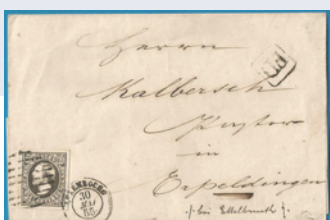 Herrn
Kalbersch
Pastor
in
Erpeldingen
./. bei Ettelbruck ./.
PD
LUXEMBOURG
30
55